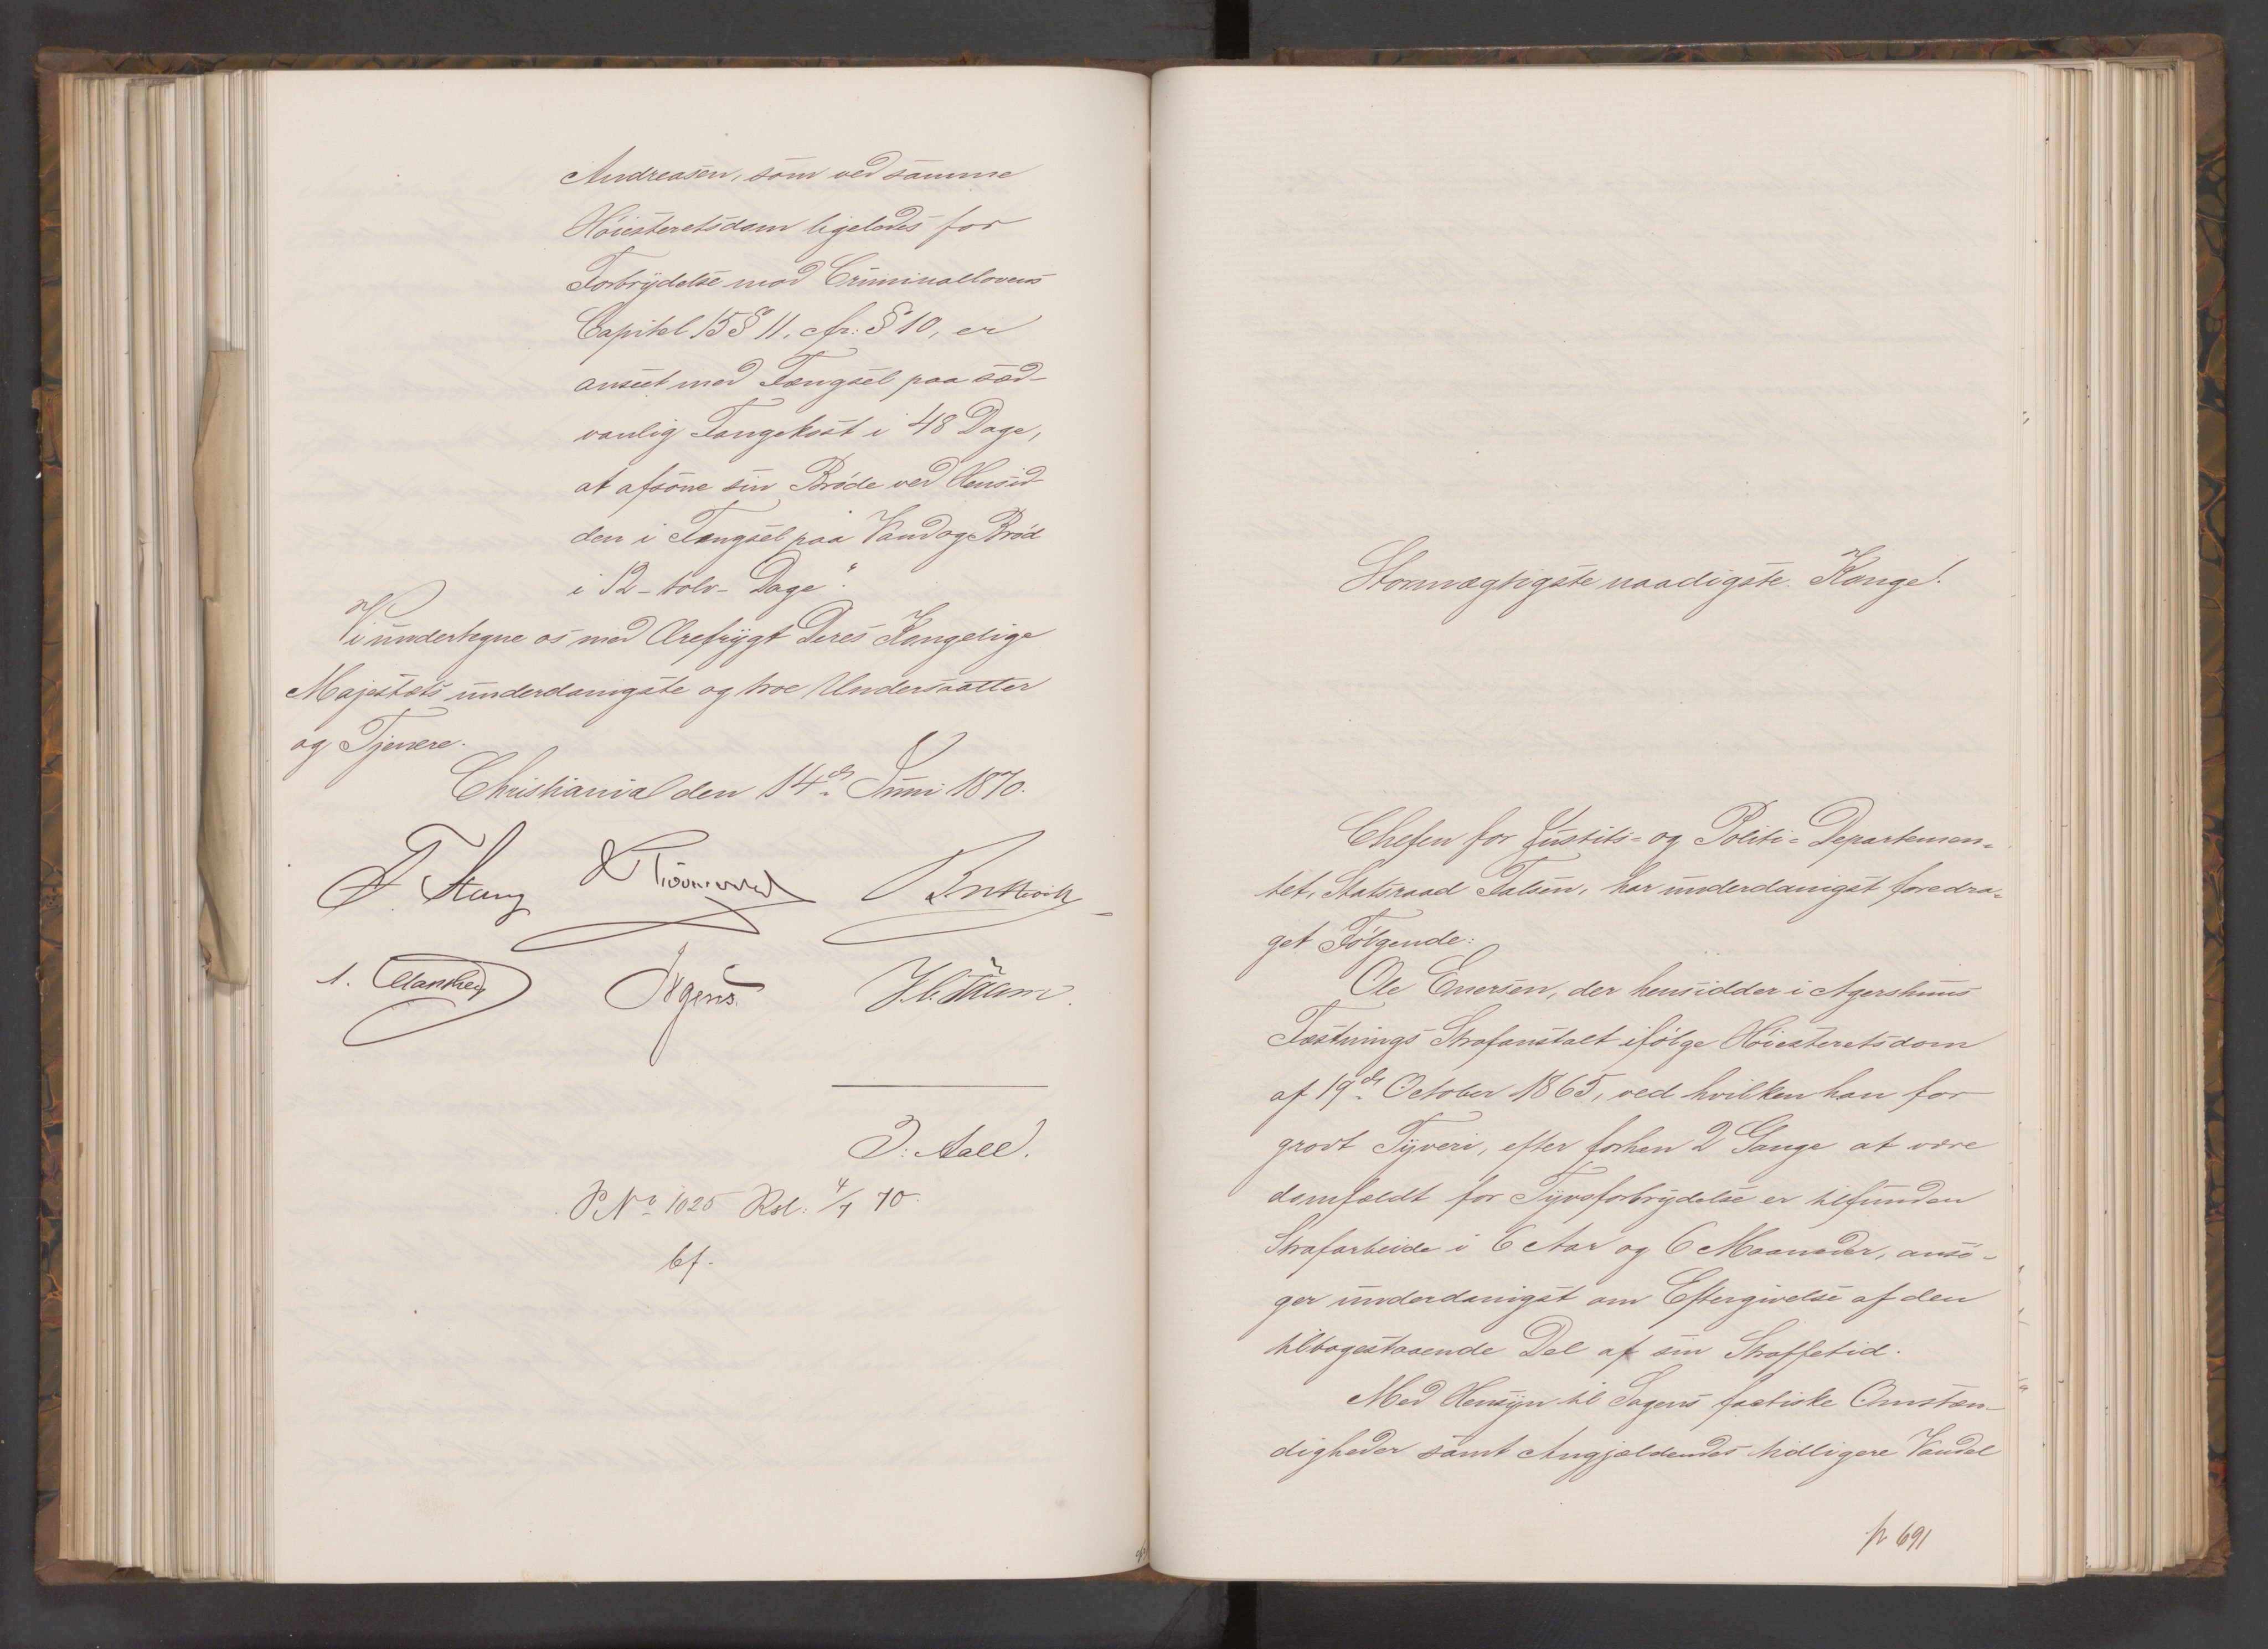 Andreasen, som ved samme
Høiesteretsdom ligeledes for
Forbrydelse mod Criminallovens
Capitel 15 § 11, cfr: § 10, er
anseet med Fængsel paa sæd-
vanlig Fangekost i 48 Dage,
at afsone sin Brøde ved Hensid
den i Fængsel paa Vand og Brød
i 12 - tolv - Dage".
Vi undertegne os med Ærefrygt Deres Kongelige
Majestæts underdanigste og troe Undersaatter
og Tjenere.
Christiania den 14de Juni 1870.
F. Stang
Irgens.
J. Aall.
P No 1025 Rsl: 4/7 70.
bf.
Stormægtigste naadigste Konge!
Chefen for Justits- og Politi-Departemen-
tet, Statsraad Falsen, har underdanigst foredra-
get Følgende:
Ole Enersen, der hensidder i Agershuus
Fæstnings Strafanstalt ifølge Høiesteretsdom
af 19de October 1865, ved hvilken han for
grovt Tyveri, efter forhen 2 Gange at være
domfældt for Tyvsforbrydelse er tilfunden
Strafarbeide i 6 Aar og 6 Maaneder, ansø-
ger underdanigst om Eftergivelse af den
tilbagestaaende Del af sin Straffetid.
Med Hensyn til Sagens factiske Omstæn-
digheder samt Angjældendes tidligere Vandel
p 691